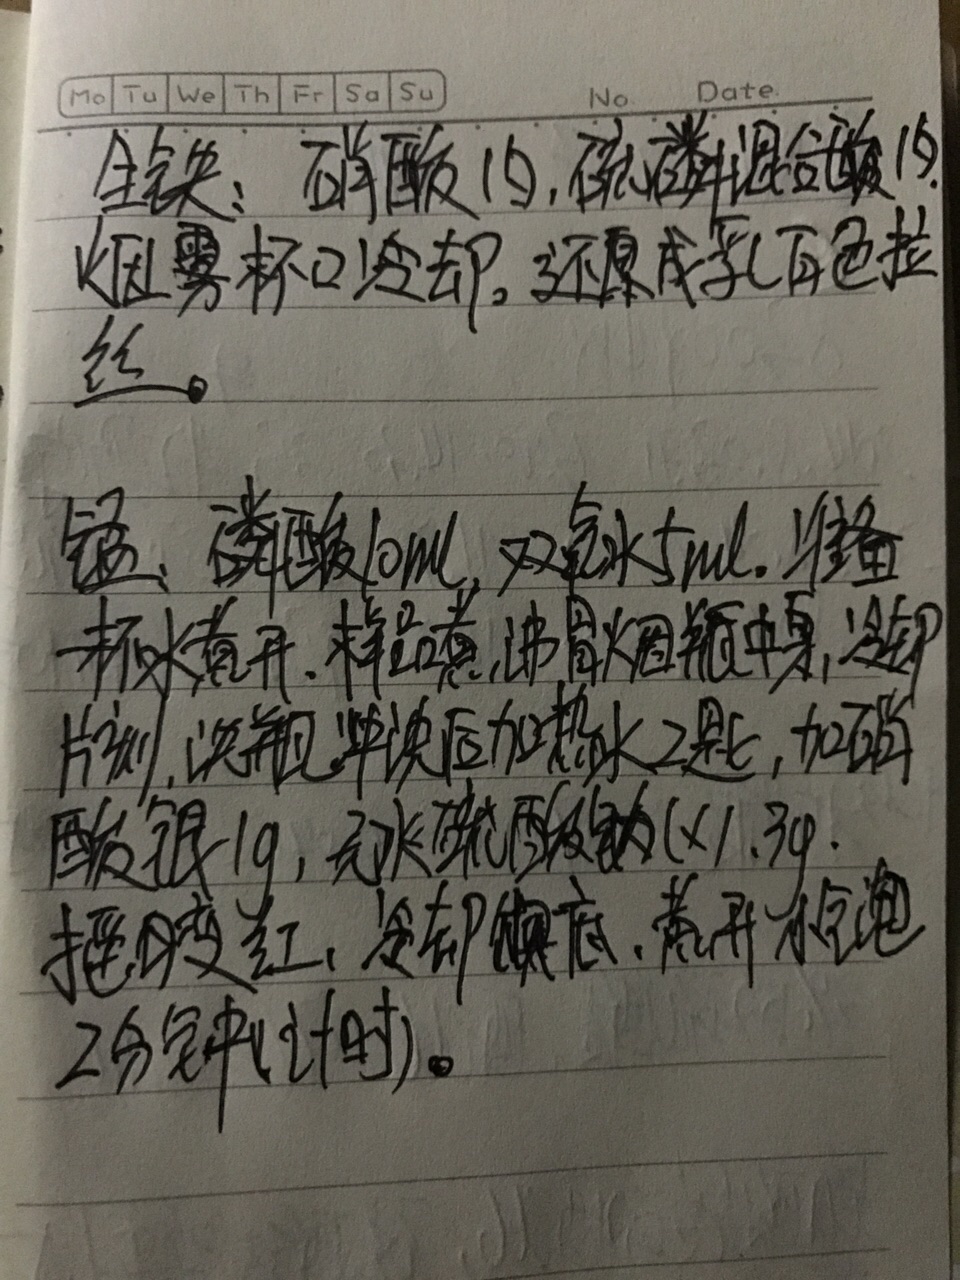 Mo Tu We Th Fr Sa Su No Date
全铁：硝酸15，硫磷混合酸15.
烟雾杯口冷却。还原成乳白色拉
丝。
锰、磷酸10ml，双氧水5ml。准备
一杯水煮开、样品煮沸冒烟瓶中身，冷却
片刻，洗瓶冲洗后加热水2匙，加硝
酸银1g，无水硫酸铵(×1.3g.
摇匀变红、冷却底、煮开水气泡
2分钟(计时)。